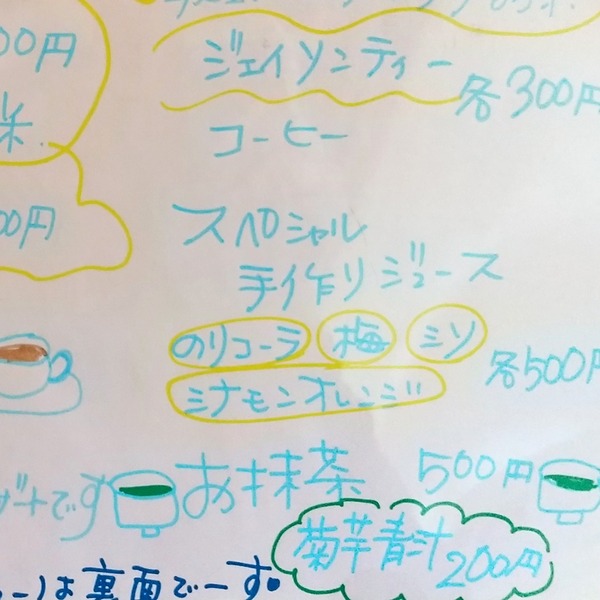 00円
ジェイソンティー
各300円
米
コーヒー
00円
スペシャル
手作りジュース
のリコーラ 梅 ミソ
各500円
シナモンオレンジ
ザートです
お抹茶 500円
菊芋青汁 200円
ーは裏面でーす。